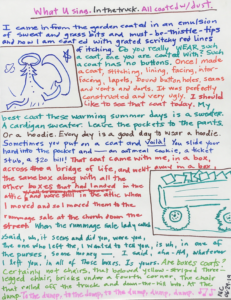 What U sing. In the truck. All coated w/ dust.
I came in from the garden coated in an emulsion
of sweat and grass bits and must-be-thistle-tips
and now I am coated with grated scritchy red lines
of itching. Do you really WEAR such
a coat, are you are coated with? Such
coat has no buttons. Once I made
a coat, stitching, lining, facing, inter-
facing, lapels, bound button holes, seams
and vents and darts. It was perfectly
constructed and very ugly. I should
like to see that coat today. My
best coat these warming summer days is a sweater.
A cardigan sweater. Leave the pockets to the pants.
Or a hoodie. Every day is a good day to wear a hoodie.
Sometimes you put on a coat and Voila! You slide your
hand into the pocket and — an oatmeal cookie, a ticket
stub, a $20 bill! That coat came with me, in a box,
across the a bridge of life, and
the same box along with all the
other boxes that had landed in the
attic and were still in the attic when
I moved and so I moved them to the
rummage sale at the church down the
street. When the rummage sale lady
said, uh, it seems and did you, were you
the one who left the, I wanted to tell you, is uh, in one of
the purses, some money —. I said, aha. Ah, whatever
I left you. In all of those boxes. Is yours. Are boxes coats?
Certainly not chairs, that
legged chair, bricks under a fourth corner, the chair
that rolled off the truck and down the hill. At the
dump. To the dump, to the dump, to the dump, dump, dump.